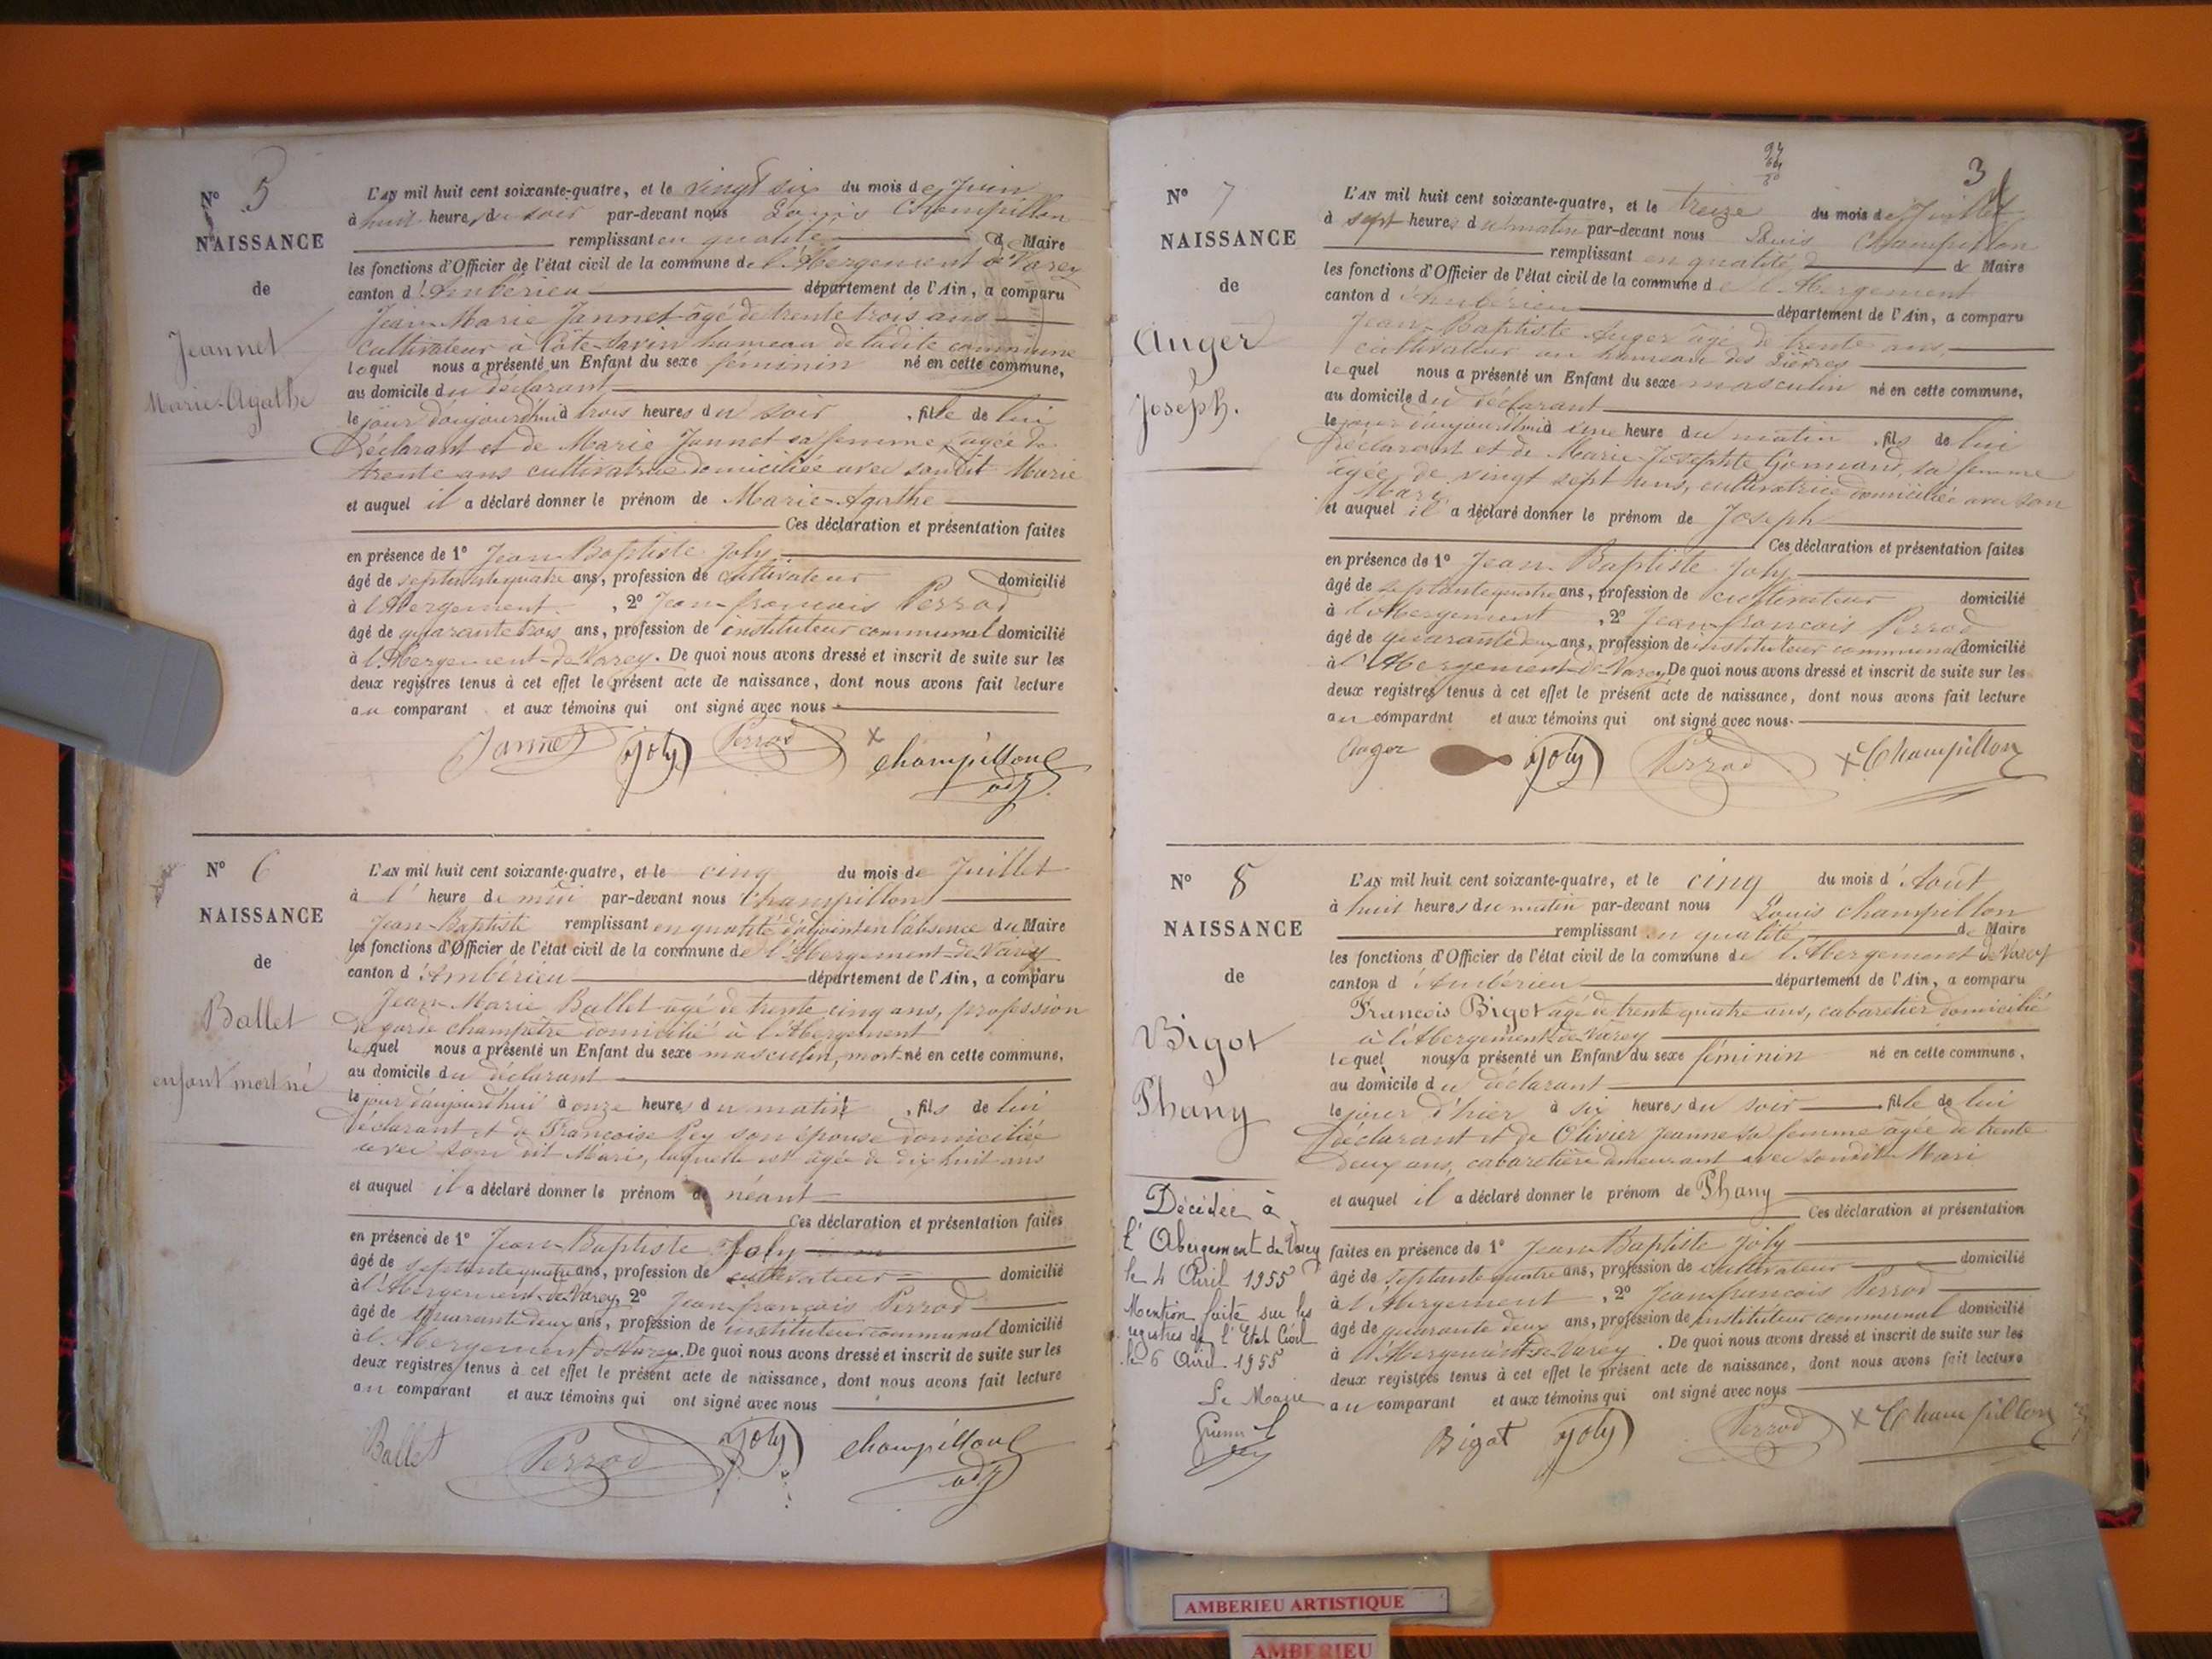 N° 5
NAISSANCE
de
Jeannet
Marie-Agathe
L'AN mil huit cent soixante-quatre, et le vingt six du mois de Juin
à huit heures du soir par-devant nous Louis Champillon
remplissant en qualité de Maire
les fonctions d'Officier de l'état civil de la commune de l'Abergement de Varey
canton d'Ambérieu département de l'Ain, a comparu
Jean-Marie Jannet âgé de trente trois ans
cultivateur à Côte-Savin hameau de ladite commune
lequel nous a présenté un Enfant du sexe féminin né en cette commune,
au domicile du déclarant
le jour d'aujourd'hui à trois heures du soir, fille de lui
Déclarant et de Marie Jannet sa femme âgée de
trente ans cultivatrice domiciliée avec son dit Marie
et auquel il a déclaré donner le prénom de Marie-Agathe
Ces déclaration et présentation faites
en présence de 1° Jean-Baptiste Joly
âgé de septante quatre ans, profession de cultivateur domicilié
à l'Abergement, 2° Jean-françois Perrod
âgé de quarante trois ans, profession de instituteur communal domicilié
à l'Abergement-de-Varey. De quoi nous avons dressé et inscrit de suite sur les
deux registres tenus à cet effet le présent acte de naissance, dont nous avons fait lecture
au comparant et aux témoins qui ont signé avec nous
Jannet Joly Perrod x Champillon
adj.
N° 6
NAISSANCE
de
Ballet
enfant mort né
L'AN mil huit cent soixante-quatre, et le cinq du mois de Juillet
à l' heure de midi par-devant nous Champillon
Jean-Baptiste remplissant en qualité d'adjoint en l'absence du Maire
les fonctions d'Officier de l'état civil de la commune de l'Abergement-de-Varey
canton d'Ambérieu département de l'Ain, a comparu
Jean-Marie Ballet âgé de trente cinq ans, profession
de garde champêtre domicilié à l'Abergement
lequel nous a présenté un Enfant du sexe masculin, mort-né en cette commune,
au domicile du déclarant
le jour d'aujourd'hui à onze heures du matin, fils de lui
Déclarant et de Françoise Rey son épouse domiciliée
avec son dit Mari, laquelle est âgée de dix huit ans
et auquel il a déclaré donner le prénom de néant
Ces déclaration et présentation faites
en présence de 1° Jean-Baptiste Joly
âgé de septante quatre ans, profession de cultivateur domicilié
à l'Abergement-de-Varey, 2° Jean-françois Perrod
âgé de quarante deux ans, profession de instituteur communal domicilié
à l'Abergement de Varey. De quoi nous avons dressé et inscrit de suite sur les
deux registres tenus à cet effet le présent acte de naissance, dont nous avons fait lecture
au comparant et aux témoins qui ont signé avec nous
Ballet Perrod Joly Champillon
adj
3
N° 7
NAISSANCE
de
Auger
Joseph.
L'AN mil huit cent soixante-quatre, et le treize du mois de Juillet
à sept heures du matin par-devant nous Louis Champillon
remplissant en qualité de Maire
les fonctions d'Officier de l'état civil de la commune de l'Abergement
canton d'Ambérieu département de l'Ain, a comparu
Jean-Baptiste Auger âgé de trente ans,
cultivateur au hameau des
lequel nous a présenté un Enfant du sexe masculin né en cette commune,
au domicile du déclarant
le jour d'aujourd'hui à une heure du matin, fils de lui
Déclarant et de Marie-Josephte Gonnand, sa femme
âgée de vingt sept ans, cultivatrice domiciliée avec son
Mari
et auquel il a déclaré donner le prénom de Joseph
Ces déclaration et présentation faites
en présence de 1° Jean-Baptiste Joly
âgé de septante quatre ans, profession de cultivateur domicilié
à l'Abergement, 2° Jean-françois Perrod
âgé de quarante deux ans, profession de instituteur communal domicilié
à l'Abergement-de-Varey De quoi nous avons dressé et inscrit de suite sur les
deux registres tenus à cet effet le présent acte de naissance, dont nous avons fait lecture
au comparant et aux témoins qui ont signé avec nous.
Auger Joly Perrod x Champillon
N° 8
NAISSANCE
de
Bigot
Phany
L'AN mil huit cent soixante-quatre, et le cinq du mois d'Août
à huit heures du matin par-devant nous Louis Champillon
remplissant en qualité de Maire
les fonctions d'Officier de l'état civil de la commune de l'Abergement de Varey
canton d'Ambérieu département de l'Ain, a comparu
François Bigot âgé de trente quatre ans, cabaretier domicilié
à l'Abergement de Varey
lequel nous a présenté un Enfant du sexe féminin né en cette commune,
au domicile du déclarant
le jour d'hier à six heures du soir, fille de lui
Déclarant et de Olivier Jeanne sa femme âgée de trente
Deux ans, cabaretière demeurant avec son dit Mari
et auquel il a déclaré donner le prénom de Phany
Ces déclaration et présentation
faites en présence de 1° Jean-Baptiste Joly
âgé de septante quatre ans, profession de cultivateur domicilié
à l'Abergement, 2° Jean françois Perrod
âgé de quarante deux ans, profession de instituteur communal domicilié
à l'Abergement-de-Varey. De quoi nous avons dressé et inscrit de suite sur les
deux registres tenus à cet effet le présent acte de naissance, dont nous avons fait lecture
au comparant et aux témoins qui ont signé avec nous
Bigot Joly Perrod x Champillon
Décédée à
l'Abergement de Varey
le 4 Avril 1955
Mention faite sur les
registres de l'Etat Civil
le 6 Avril 1955
Le Maire
AMBERIEU ARTISTIQUE
AMBERIEU